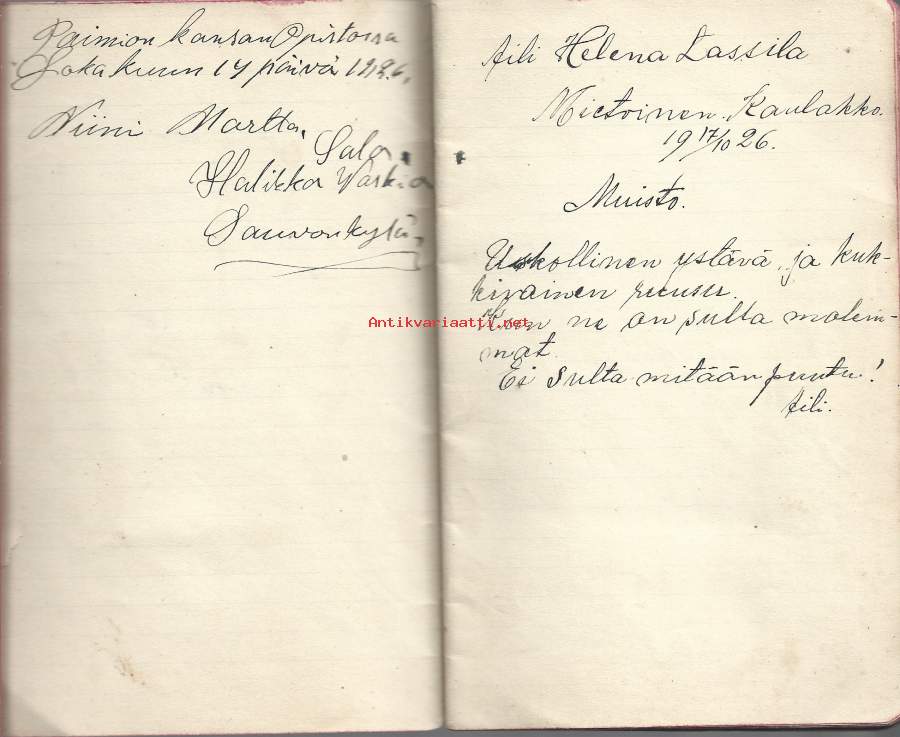 Paimion kansan Opistossa
Lokakuun 14 päivä 1926.
Niini Martta,
Salo.
Halikko Vaskio
Sauvonkylä,
Aili Helena Lassila
Mietoinen. Kaulakko.
19 17/10 26.
Muisto.
Uskollinen ystävä, ja kuk-
kivainen ruusu.
Kun ne on sulla molem-
mat.
Ei sulta mitään puutu!
Aili.
Antikvariaatti.net